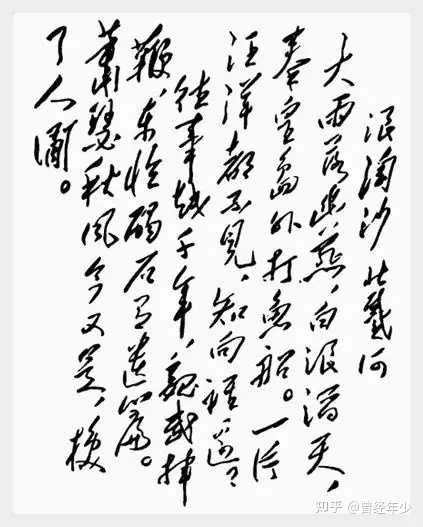 浪淘沙 北戴河
大雨落幽燕，白浪滔天，
秦皇岛外打魚船。一片
汪洋都不見，知向誰邊？
往事越千年，魏武揮
鞭，东临碣石有遺篇。
蕭瑟秋风今又是，换
了人间。
知乎 @曾经年少